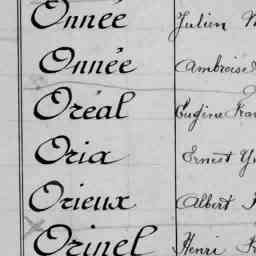 Onnée Julien
Onnée Ambroise
Oréal Eugène
Oria Ernest
Orieux Albert
Orinel Henri